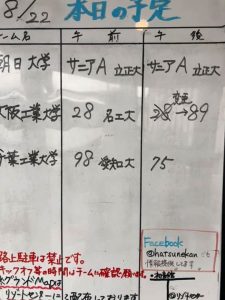 8/22 本日の予定
ーム名 午前 午後
朝日大学 サニアA 立正大 サニアA 立正大
大阪工業大学 28 名工大 38→89 変更
千葉工業大学 98 愛知大 75
路上駐車は禁止です。
キックオフ等の時間はチームに確認お願います。
Facebook
@hatsunekan でも
情報提供しています